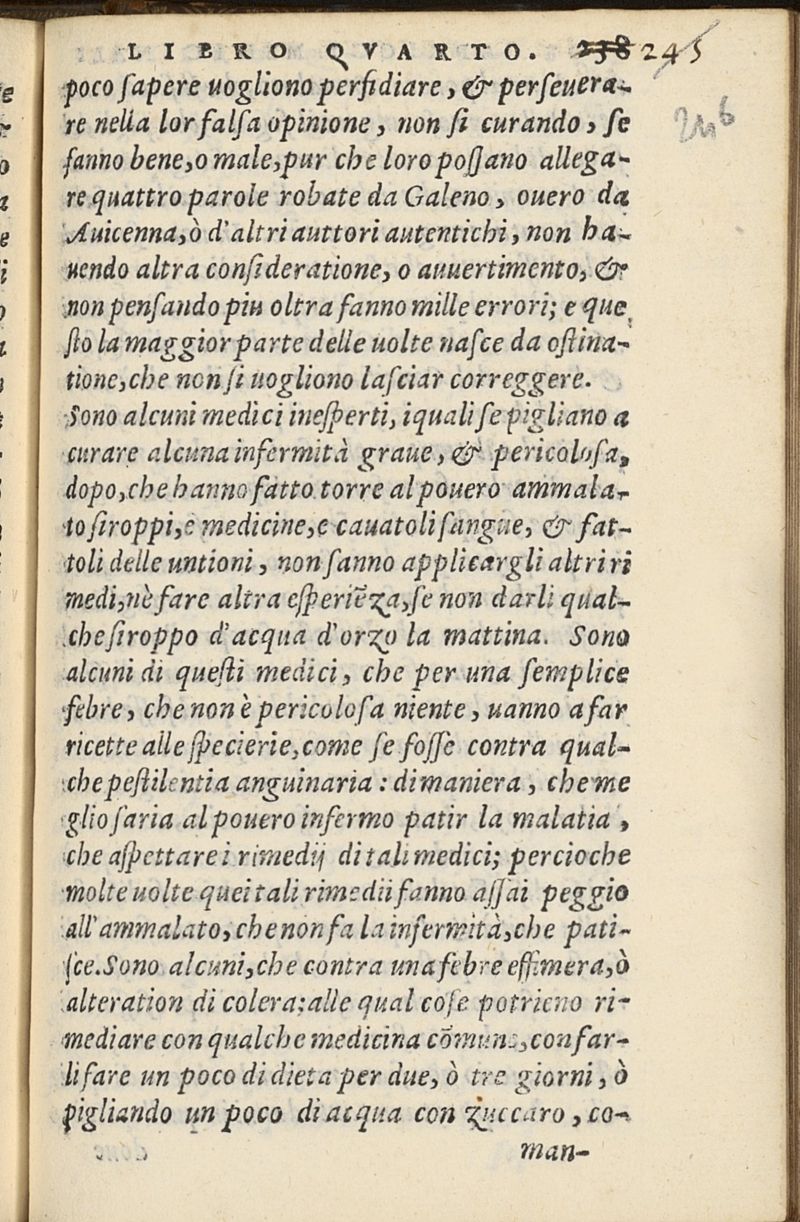 LIBRO QVARTO. 238 245
poco ſapere uogliono perfidiare, & perſeuera-
re nella lor falſa opinione, non ſi curando, ſe
fanno bene, o male, pur che loro poſſano allega-
re quattro parole robate da Galeno, ouero da
Auicenna, ò d'altri auttori autentichi, non ha-
uendo altra conſideratione, o auuertimento, &
non penſando piu oltra fanno mille errori; e que
ſto la maggior parte delle uolte naſce da oſtina-
tione, che non ſi uogliono laſciar correggere.
Sono alcuni medici ineſperti, i quali ſe pigliano a
curare alcuna infermità graue, & pericoloſa,
dopo, che hanno fatto torre al pouero ammala-
to ſiroppi, e medicine, e cauatoli ſangue, & fat-
toli delle untioni, non ſanno applicargli altri ri
medi, nè fare altra eſperiẽza, ſe non darli qual-
che ſiroppo d'acqua d'orzo la mattina. Sono
alcuni di queſti medici, che per una ſemplice
febre, che non è pericoloſa niente, uanno a far
ricette alle ſpecierie, come ſe foſſe contra qual-
che peſtilentia anguinaria: di maniera, che me
glio ſaria al pouero infermo patir la malatia,
che aſpettare i rimedij di tali medici; percioche
molte uolte quei tali rimedii fanno aſſai peggio
all'ammalato, che non fa la infermità, che pati-
ſce. Sono alcuni, che contra una febre effimera, ò
alteration di colera; alle qual coſe potrieno ri-
mediare con qualche medicina cõmune, con far-
li fare un poco di dieta per due, ò tre giorni, ò
pigliando un poco di acqua con zuccaro, co-
man-